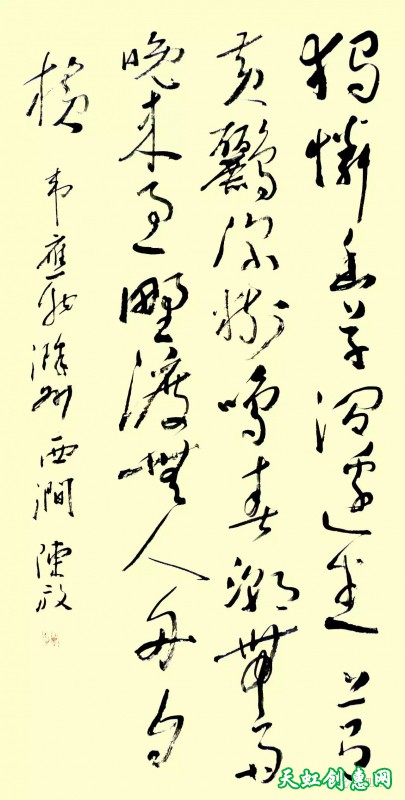 獨憐幽草澗邊生上有
黃鸝深樹鳴春潮帶雨
晚來急野渡無人舟自
橫
韋應物滁州西澗 陳放
天虹创惠网